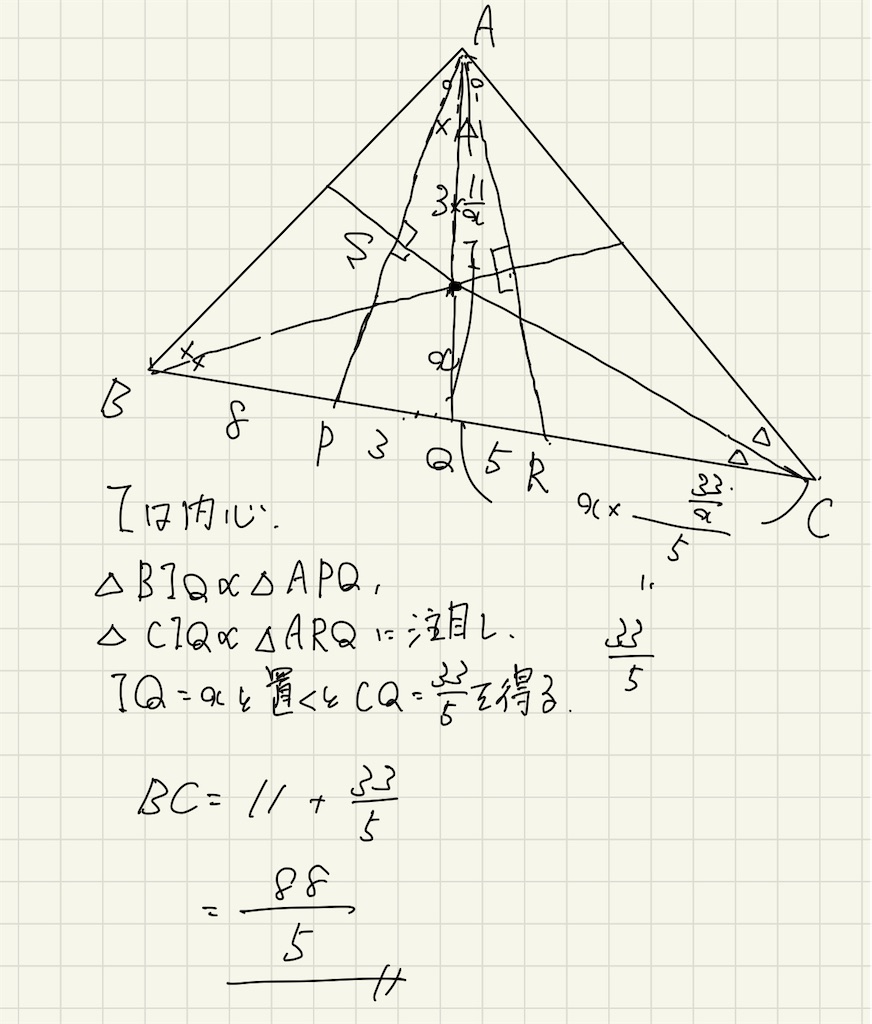 A
∘ ∘
× △
3×11/x
S
I
x
××
B
8
P
3
Q
5
R
△
△
C
x× 33/x / 5
〃
33/5
Iは内心.
△BIQ∝△APQ,
△CIQ∝△ARQに注目し.
IQ=xと置くとCQ=33/5を得る.
BC=11+33/5
=88/5